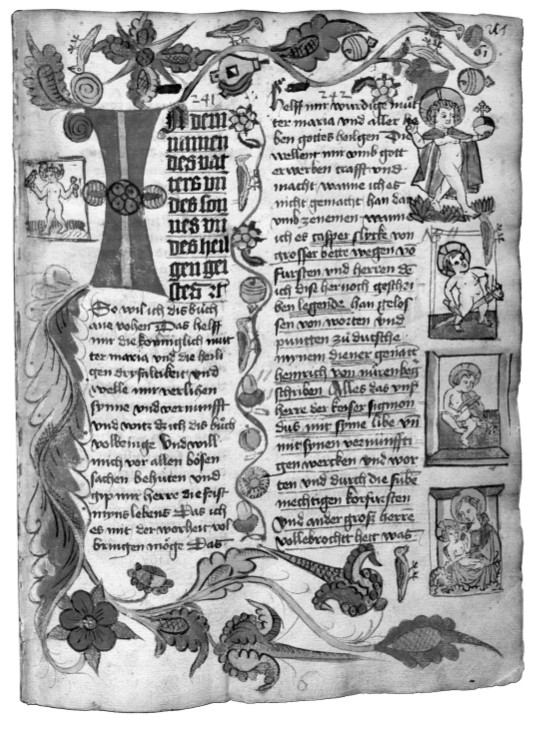 241
In dem
namen
des vat
ters vn
des son
nes vn
des heil
gen gei
stes
So wil ich dis buch
ane vohen Das helff
mir die konniglich mut
ter maria vnd die heili
gen dryfaltikeit vnd
welle mir verlihen
synne vnd vernunfft
vnd witz dz ich dis buch
volbringe Vnd will
mich vor allen bösen
sachen behuten vnd
gip mir herre die frist
myns lebens Das ich
es mit der worheit vol
bringen möge Das
242
Helff mir wurdige mut
ter maria vnd aller he
ben gottes heiligen Die
wellent mir vmb gott
erwerben crafft vnd
macht wanne ich es
nicht gemacht han dar
vmb zenemen wanne
ich es casper slycke von
grosser bette wegen vo
fursten vnd herren de
ich dise hernoch geschri
ben legende han gelos
sen von worten vnd
puncten zu dutsche
mynem diener genatt
heinrich von nurenberg
schriben Alles das vnß
herre der keiser sigmon
dus mit sime libe vn
mit synen vernunffti
gen wercken vnd wor
ten vnd durch die sube
mechtigen korfursten
vnd ander groß herre
vollebrocht hett was